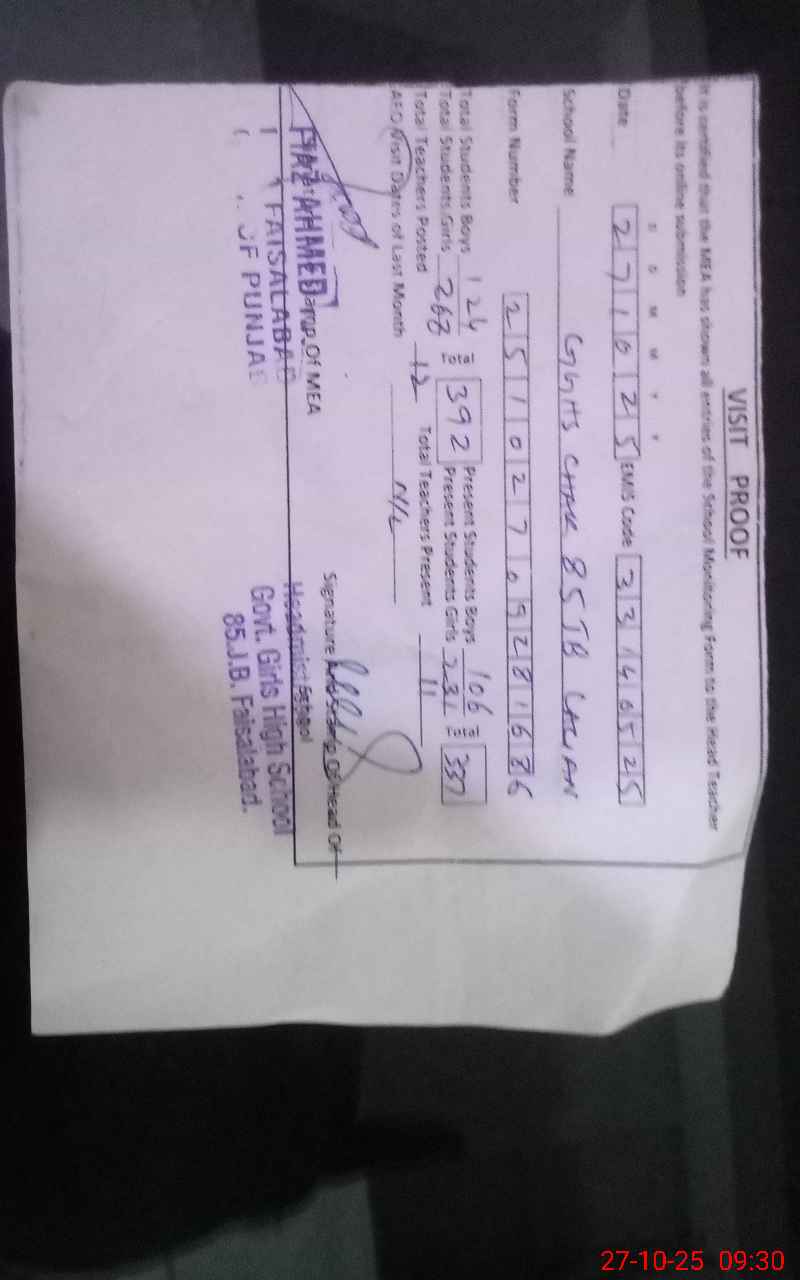 VISIT PROOF
It is certified that the MEA has shown all entries of the School Monitoring Form to the Head Teacher
before its online submission
D D M M Y Y
Date 271025 EMIS Code 33140525
School Name GGHS CHAK 85 JB
Form Number 25102709281686
Total Students Boys 124 = 392 Present Students Boys 106 = 337
Total Students Girls 268 Present Students Girls 231
Total Teachers Posted 12 Total Teachers Present 11
AEO Visit Dates of Last Month
Stamp Of MEA
AHMED
FAISALABAD
OF PUNJAB
Signature And Stamp Of Head Of
School
Headmistress
Govt. Girls High School
85.J.B. Faisalabad.
27-10-25 09:30